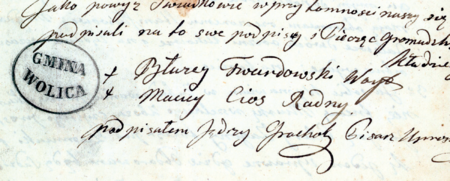 Jako powyż Swiadkowie w przytomności naszy się
podpisali na to swe podpisy i Pieczęć Gromadzką
Kładzie
GMINA
WOLICA
+ Błarzy Twardowski Woyt
+ Maciey Cios Radny
podpisałem Jędrzy Grochol Pisarz